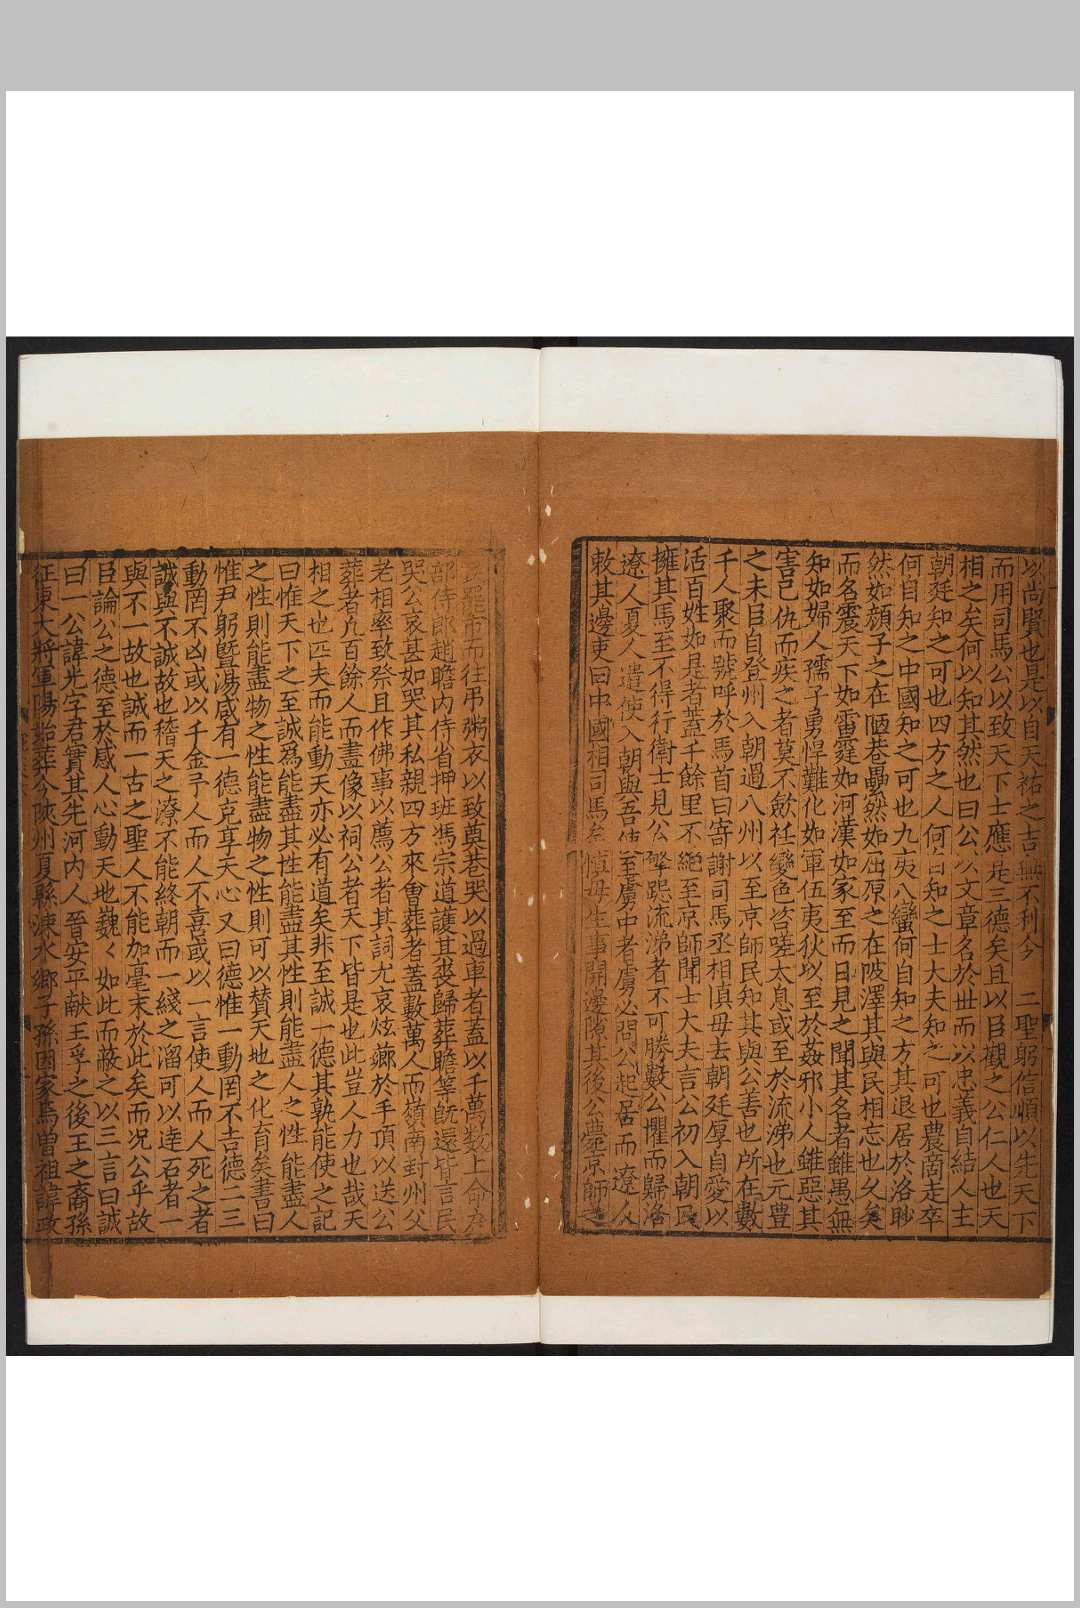 以尚賢也是以自天祐之吉無不利今　二聖躬信順以先天下
而用司馬公以致天下士應是三德矣且以臣觀之公仁人也天
相之矣何以知其然也曰公以文章名於世而以忠義自結人主
朝廷知之可也四方之人何自知之士大夫知之可也農商走卒
何自知之中國知之可也九夷八蠻何自知之方其退居於洛眇
然如顔子之在陋巷纍然如屈原之在陂澤其與民相忘也久矣
而名震天下如雷霆如河漢如家至而日見之聞其名者雖愚無
知如婦人孺子勇悍難化如軍伍夷狄以至於姦邪小人雖惡其
害己仇而疾之者莫不歛衽變色咨嗟太息或至於流涕也元豊
之末臣自登州入朝過八州以至京師民知其與公善也所在數
千人聚而號呼於馬首曰寄謝司馬丞相慎毋去朝廷厚自愛以
活百姓如是者蓋千餘里不絕至京師聞士大夫言公初入朝民
擁其馬至不得行衛士見公擎跽流涕者不可勝數公懼而歸洛
遼人夏人遣使入朝與吾使至虜中者虜必問公起居而遼人
敕其邊吏曰中國相司馬矣慎毋生事開邊隙其後公薨京師之
民罷市而往弔粥衣以致奠巷哭以過車者蓋以千萬數上命户
部侍郎趙瞻内侍省押班馮宗道護其喪歸葬瞻等旣還皆言民
哭公哀甚如哭其私親四方來會葬者蓋數萬人而嶺南封州父
老相率致祭且作佛事以薦公者其詞尤哀炷薌於手頂以送公
葬者凡百餘人而畫像以祠公者天下皆是也此豈人力也哉天
相之也匹夫而能動天亦必有道矣非至誠一德其孰能使之記
曰惟天下之至誠爲能盡其性能盡其性則能盡人之性能盡人
之性則能盡物之性能盡物之性則可以贊天地之化育矣書曰
惟尹躬曁湯咸有一德克享天心又曰德惟一動罔不吉德二三
動罔不凶或以千金予人而人不喜或以一言使人而人死之者
誠與不誠故也稽天之潦不能終朝而一綫之溜可以達石者一
與不一故也誠而一古之聖人不能加毫末於此矣而况公乎故
臣論公之德至於感人心動天地巍〻如此而蔽之以三言曰誠
曰一公諱光字君實其先河内人晉安平献王孚之後王之裔孫
征東大將軍陽始葬今陝州夏縣涑水鄉子孫因家焉曽祖諱政